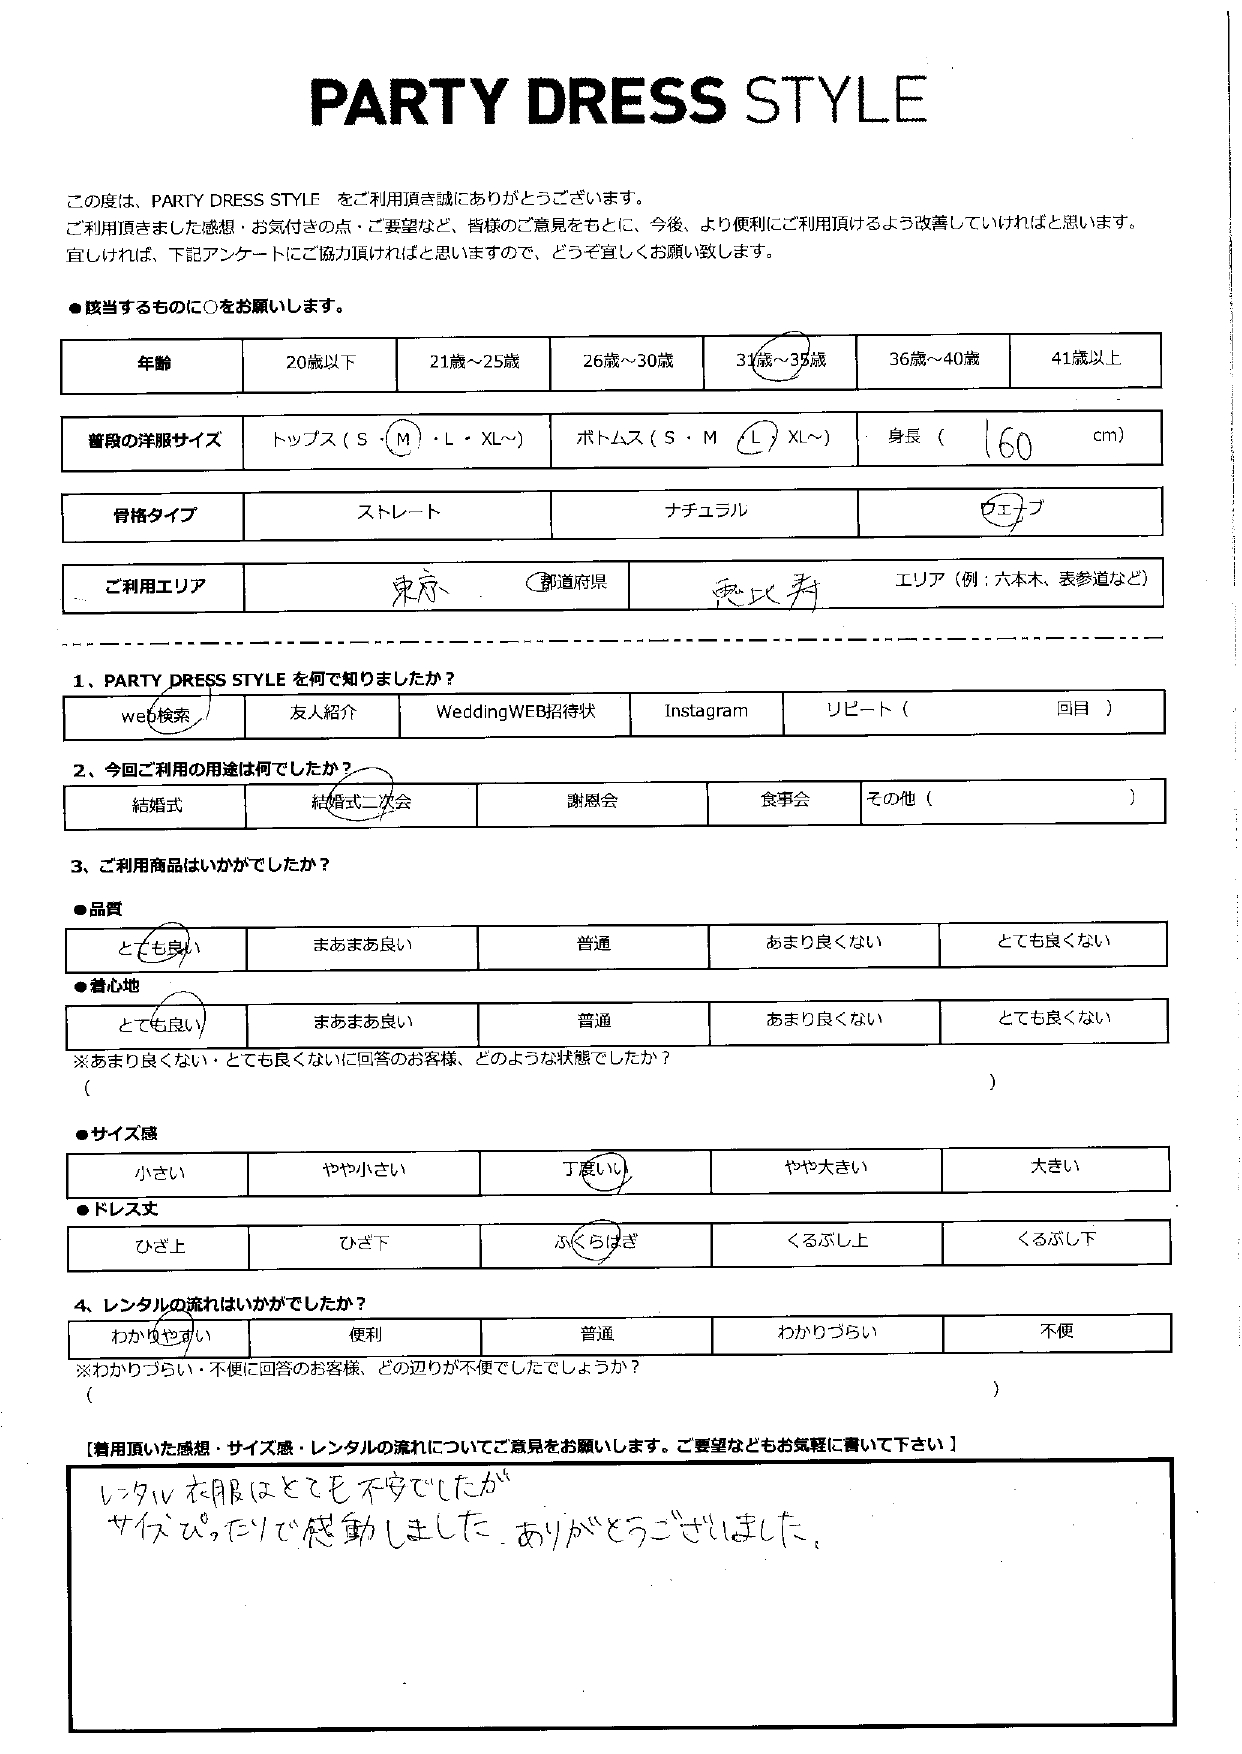 PARTY DRESS STYLE
この度は、PARTY DRESS STYLE をご利用頂き誠にありがとうございます。
ご利用頂きました感想・お気付きの点・ご要望など、皆様のご意見をもとに、今後、より便利にご利用頂けるよう改善していければと思います。
宜しければ、下記アンケートにご協力頂ければと思いますので、どうぞ宜しくお願い致します。
●該当するものに○をお願いします。
年齢 20歳以下 21歳～25歳 26歳～30歳 31歳～35歳 36歳～40歳 41歳以上
普段の洋服サイズ トップス ( S ・ M ・ L ・ XL～) ボトムス ( S ・ M ・ L ・ XL～) 身長 ( 160 cm)
骨格タイプ ストレート ナチュラル ウェーブ
ご利用エリア 東京 都道府県 恵比寿 エリア（例：六本木、表参道など）
1、PARTY DRESS STYLE を何で知りましたか？
web検索 友人紹介 WeddingWEB招待状 Instagram リピート ( 回目 )
2、今回ご利用の用途は何でしたか？
結婚式 結婚式二次会 謝恩会 食事会 その他 ( )
3、ご利用商品はいかがでしたか？
●品質
とても良い まあまあ良い 普通 あまり良くない とても良くない
●着心地
とても良い まあまあ良い 普通 あまり良くない とても良くない
※あまり良くない・とても良くないに回答のお客様、どのような状態でしたか？
( )
●サイズ感
小さい やや小さい 丁度いい やや大きい 大きい
●ドレス丈
ひざ上 ひざ下 ふくらはぎ くるぶし上 くるぶし下
4、レンタルの流れはいかがでしたか？
わかりやすい 便利 普通 わかりづらい 不便
※わかりづらい・不便に回答のお客様、どの辺りが不便でしたでしょうか？
( )
【着用頂いた感想・サイズ感・レンタルの流れについてご意見をお願いします。ご要望などもお気軽に書いて下さい】
レンタル衣服はとても不安でしたが
サイズぴったりで感動しました。ありがとうございました。